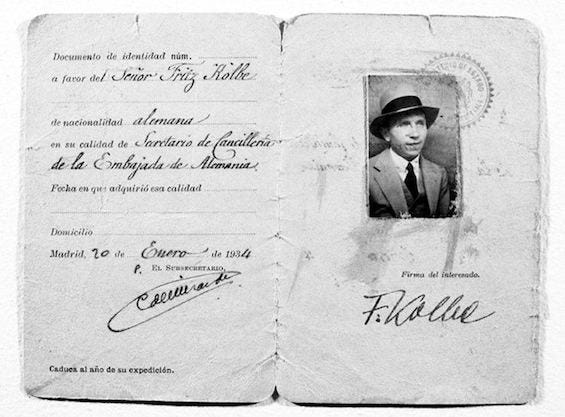 Documento de identidad núm.
a favor del Señor Fritz Kolbe
de nacionalidad alemana
en su calidad de Secretario de Cancillería
de la Embajada de Alemania.
Fecha en que adquirió esa calidad
Domicilio
Madrid, 20 de Enero de 1934
P. EL SUBSECRETARIO,
Caduca al año de su expedición.
Firma del interesado.
F. Kolbe